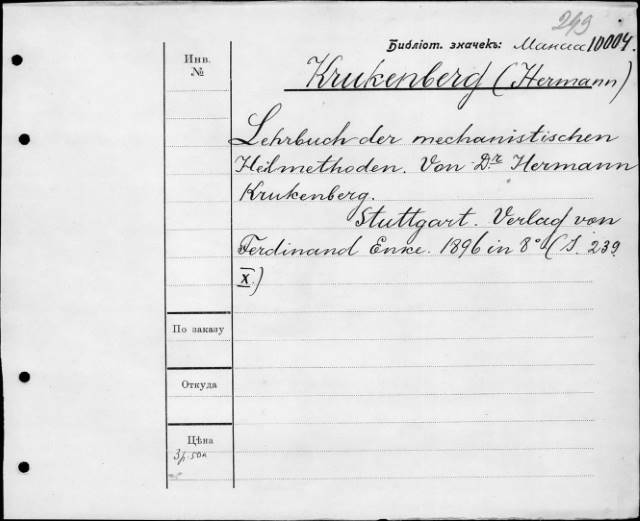 249
Библіот. значекъ: Манса 10004.
Инв.
№
Krukenberg (Hermann)
Lehrbuch der mechanistischen
Heilmethoden. Von Dr. Hermann
Krukenberg.
Stuttgart. Verlag von
Ferdinand Enke. 1896 in 8° (S. 239
X.)
По заказу
Откуда
Цѣна
3р. 50к